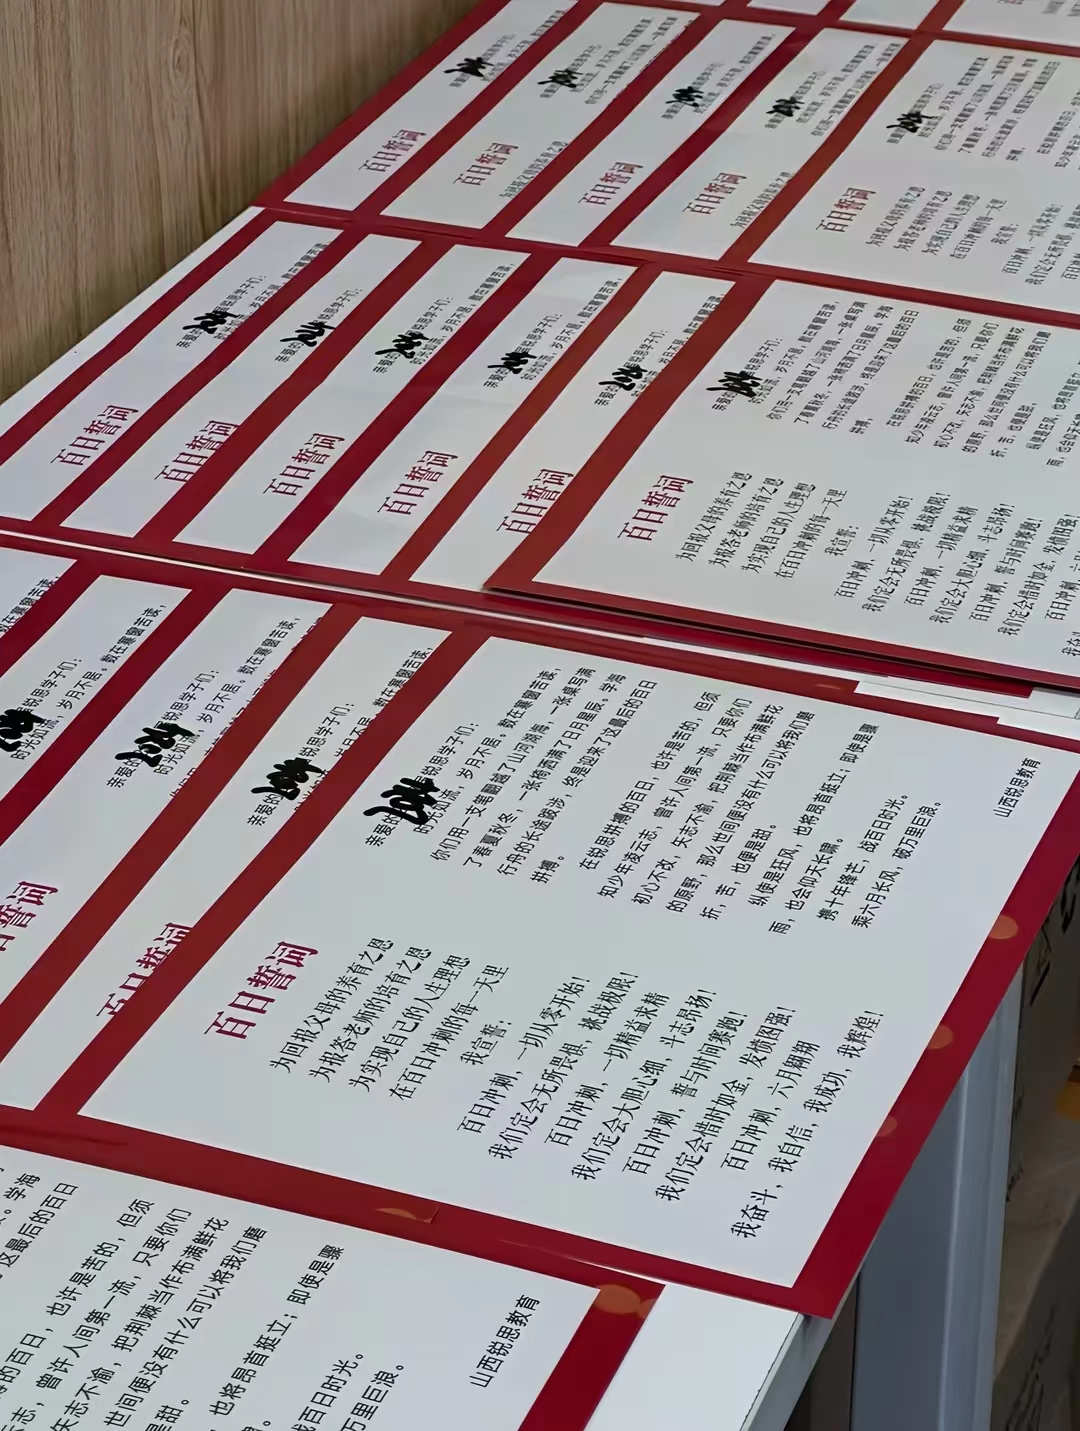 百日誓词
为回报父母的养育之恩
为报答老师的培育之恩
为实现自己的人生理想
在百日冲刺的每一天里
我宣誓：
百日冲刺，一切从零开始！
我们定会无所畏惧，挑战极限！
百日冲刺，一切精益求精
我们定会大胆心细，斗志昂扬！
百日冲刺，誓与时间赛跑！
我们定会惜时如金，发愤图强！
百日冲刺，六月翱翔
我奋斗，我自信，我成功，我辉煌！
亲爱的锐思学子们：
时光如流，岁月不居。数在寒窗苦读，
你们用一支笔翻越了山河湖海，一张桌写满
了春夏秋冬，一张椅洒满了日月星辰。学海
行舟的长途跋涉，终是迎来了这最后的百日
拼搏。
在锐思拼搏的百日，也许是苦的，但须
知少年凌云志，曾许人间第一流，只要你们
初心不改，矢志不渝，把荆棘当作布满鲜花
的原野，那么世间便没有什么可以将我们磨
折，苦，也便是甜。
纵使是狂风，也将昂首挺立；即使是骤
雨，也会仰天长啸。
携十年锋芒，战百日时光。
乘六月长风，破万里巨浪。
山西锐思教育